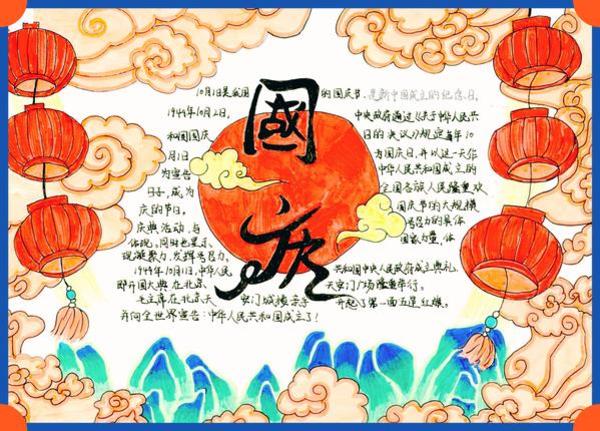 國慶
10月1日是我国的国庆节,是新中国成立的纪念日。
1949年10月2日,中央政府通过《关于中华人民共
和国国庆日的决议》规定每年10
月1日为国庆日,并以这一天作
为宣告中华人民共和国成立的
日子,成为全国各族人民隆重欢
庆的节日。国庆节的大规模
庆典活动,与号召力的具体
体现,同时也显示国家力量,体
现凝聚力,发挥号召力。
1949年10月1日,中华人民共和国中央人民政府成立典礼,
即开国大典在北京天安门广场隆重举行。
毛主席在北京天安门城楼亲手升起了第一面五星红旗。
并向全世界宣告:中华人民共和国成立了!